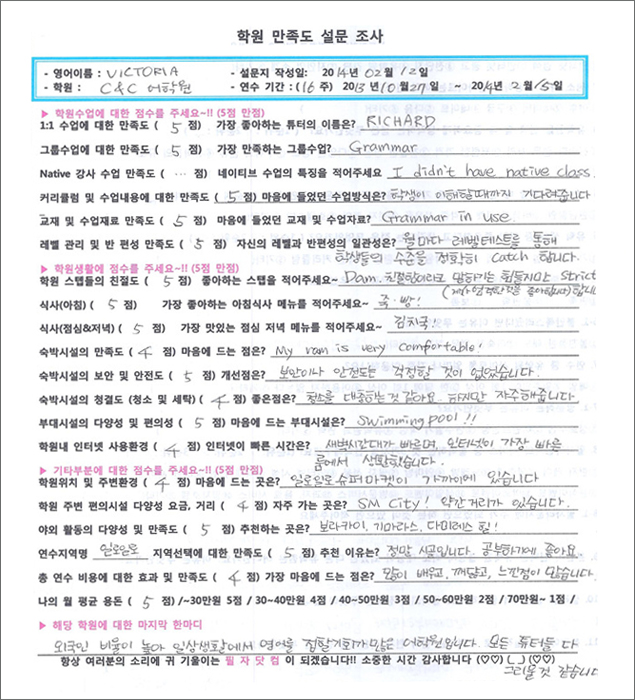 학원 만족도 설문 조사
- 영어이름 : VICTORIA - 설문지 작성일: 2014년 02월 12일
- 학원 : C&C 어학원 - 연수 기간 : (16주) 2013년 10월 27일 ~ 2014년 2월 15일
▶ 학원수업에 대한 점수를 주세요~!! (5점 만점)
1:1 수업에 대한 만족도 ( 5 점) 가장 좋아하는 튜터의 이름은? RICHARD
그룹수업에 대한 만족도 ( 5 점) 가장 만족하는 그룹수업? Grammar
Native 강사 수업 만족도 ( ... 점) 네이티브 수업의 특징을 적어주세요 I didn't have native class.
커리큘럼 및 수업내용에 대한 만족도 ( 5 점) 마음에 들었던 수업방식은? 학생이 이해할때까지 기다려줍니다
교재 및 수업재료 만족도 ( 5 점) 마음에 들었던 교재 및 수업자료? Grammar in use.
레벨 관리 및 반 편성 만족도 ( 5 점) 자신의 레벨과 반편성의 일관성은? 월마다 레벨테스트를 통해
학생들의 수준을 정확히 catch 합니다.
▶ 학원생활에 점수를 주세요~!! (5점 만점)
학원 스텝들의 친절도 ( 5 점) 좋아하는 스탭을 적어주세요~ Dam. 친절함이라고 말하기는 힘들지만 Strict
합니다
식사(아침) ( 5 점) 가장 좋아하는 아침식사 메뉴를 적어주세요~ 죽·빵!
식사(점심&저녁) ( 5 점) 가장 맛있는 점심 저녁 메뉴를 적어주세요~ 김치국!
숙박시설의 만족도 ( 4 점) 마음에 드는 점은? My room is very comfortable!
숙박시설의 보안 및 안전도 ( 5 점) 개선점은? 보안이나 안전도는 걱정할 것이 없었습니다.
숙박시설의 청결도 (청소 및 세탁) ( 4 점) 좋은점은? 청소를 대충하는것 같아요. 하지만 자주해줍니다.
부대시설의 다양성 및 편의성 ( 5 점) 마음에 드는 부대시설은? Swimming pool !!
학원내 인터넷 사용환경 ( 4 점) 인터넷이 빠른 시간은? 새벽시간대가 빠르며, 인터넷이 가장 빠른
룸에서 생활했습니다.
▶ 기타부분에 대한 점수를 주세요~!! (5점 만점)
학원위치 및 주변환경 ( 4 점) 마음에 드는 곳은? 일로일로슈퍼마켓이 가까이에 있습니다
학원 주변 편의시설 다양성 요금, 거리 ( 4 점) 자주 가는 곳은? SM City! 약간 거리가 있습니다.
야외 활동의 다양성 및 만족도 ( 5 점) 추천하는 곳은? 보라카이, 기마라스, 다미레스 힐!
연수지역명 일로일로 지역선택에 대한 만족도 ( 5 점) 추천 이유는? 정말 시골입니다. 공부하기에 좋아요.
총 연수 비용에 대한 효과 및 만족도 ( 4 점) 가장 마음에 드는 점은? 많이 배우고, 깨닫고, 느낀점이 많습니다
나의 월 평균 용돈 ( 5 점) /~30만원 5점 / 30~40만원 4점 / 40~50만원 3점 / 50~60만원 2점 / 70만원~ 1점 /
▶ 해당 학원에 대한 마지막 한마디
외국인 비율이 높아 일상생활에서 영어를 접할기회가 많은 어학원입니다. 모든 튜터들 다
그리울 것 같습니다
항상 여러분의 소리에 귀 기울이는 필 자 닷 컴 이 되겠습니다!! 소중한 시간 감사합니다 (♡♡) (_ _) (♡♡)